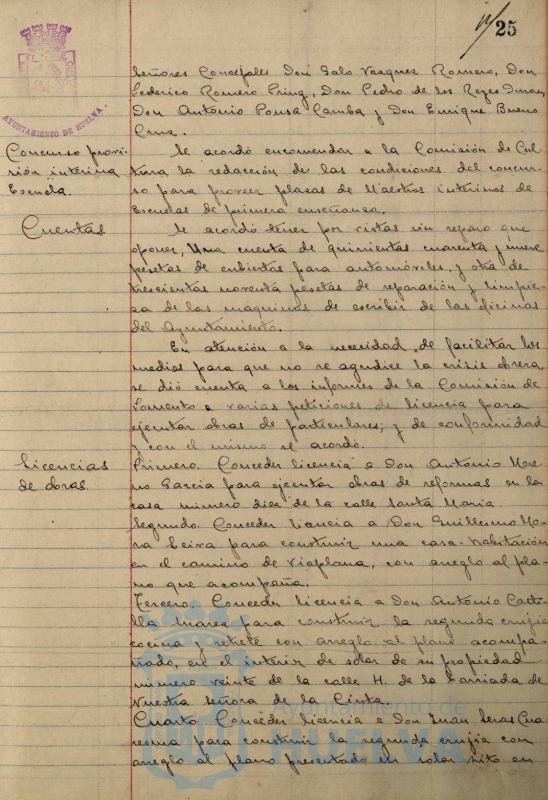 25
AYUNTAMIENTO DE HUELVA
Señores Concejales Don Galo Vazquez Romero, Don
Federico Romero Pring, Don Pedro de los Reyes
Don Antonio Pousa Camba y Don Enrique Bueno
Cruz.
Concurso provi-
sión interina
Escuela.
Se acordó encomendar a la Comisión de Cul-
tura la redacción de las condiciones del concur-
so para proveer plazas de Maestros interinos de
Escuelas de primera enseñanza.
Cuentas
Se acordó tener por vistas sin reparo que
oponer, una cuenta de quinientas cuarenta y nueve
pesetas de cubiertas para automóviles, y otra de
trescientas noventa pesetas de reparación y limpie-
za de las máquinas de escribir de las oficinas
del Ayuntamiento.
En atención a la necesidad de facilitar los
medios para que no se agudice la crisis obrera,
se dió cuenta a los informes de la Comisión de
Fomento a varias peticiones de licencia para
ejecutar obras de particulares; y de conformidad
y con el mismo se acordó.
Licencias
de obras.
Primero. Conceder licencia a Don Antonio More-
no Garcia para ejecutar obras de reformas en la
casa número diez de la calle Santa Maria.
Segundo. Conceder licencia a Don Guillermo Mo-
ra Leiva para construir una casa-habitación
en el camino de Viaplana, con arreglo al pla-
no que acompaña.
Tercero. Conceder licencia a Don Antonio Casti-
lla para construir la segunda crujía
cocina y retrete con arreglo al plano acompa-
ñado, en el interior de solar de su propiedad
número veinte de la calle H. de la barriada de
Nuestra Señora de la Cinta.
Cuarto. Conceder licencia a Don Juan Heras Cua-
resma para construir la segunda crujía con
arreglo al plano presentado en solar sito en
Ayuntamiento de
HUELVA